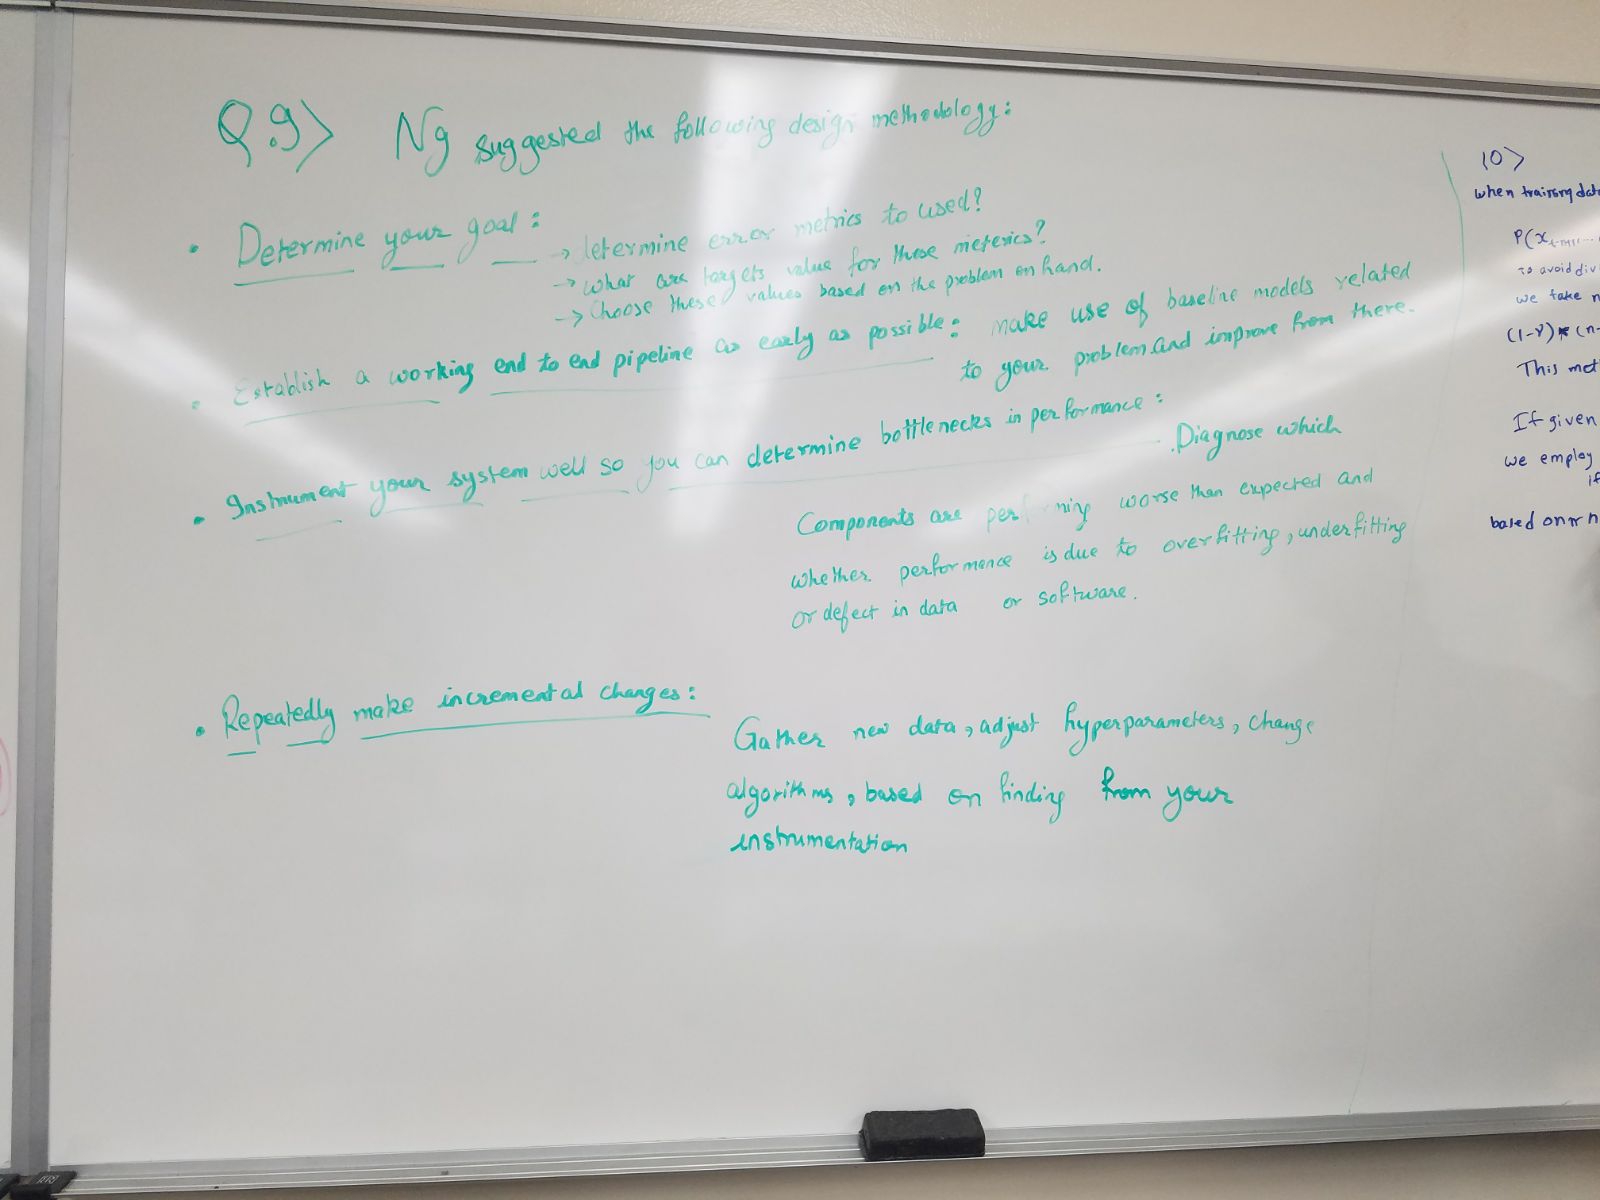 Q.9> Ng suggested the following design methodology:
• Determine your goal:
→ determine error metrics to used?
→ what are targets value for these meterics?
→ Choose these values based on the problem on hand.
• Establish a working end to end pipeline as early as possible: make use of baseline models related
to your problem and improve from there.
• Instrument your system well so you can determine bottlenecks in performance:
Diagnose which
Components are performing worse than expected and
whether performance is due to overfitting, underfitting
or defect in data or software.
• Repeatedly make incremental changes:
Gather new data, adjust hyperparameters, change
algorithms, based on finding from your
instrumentation
10>
when training dat
P(x
to avoid div
we take n
(1-γ)* (n-
This met
If given
we employ
if
based on n